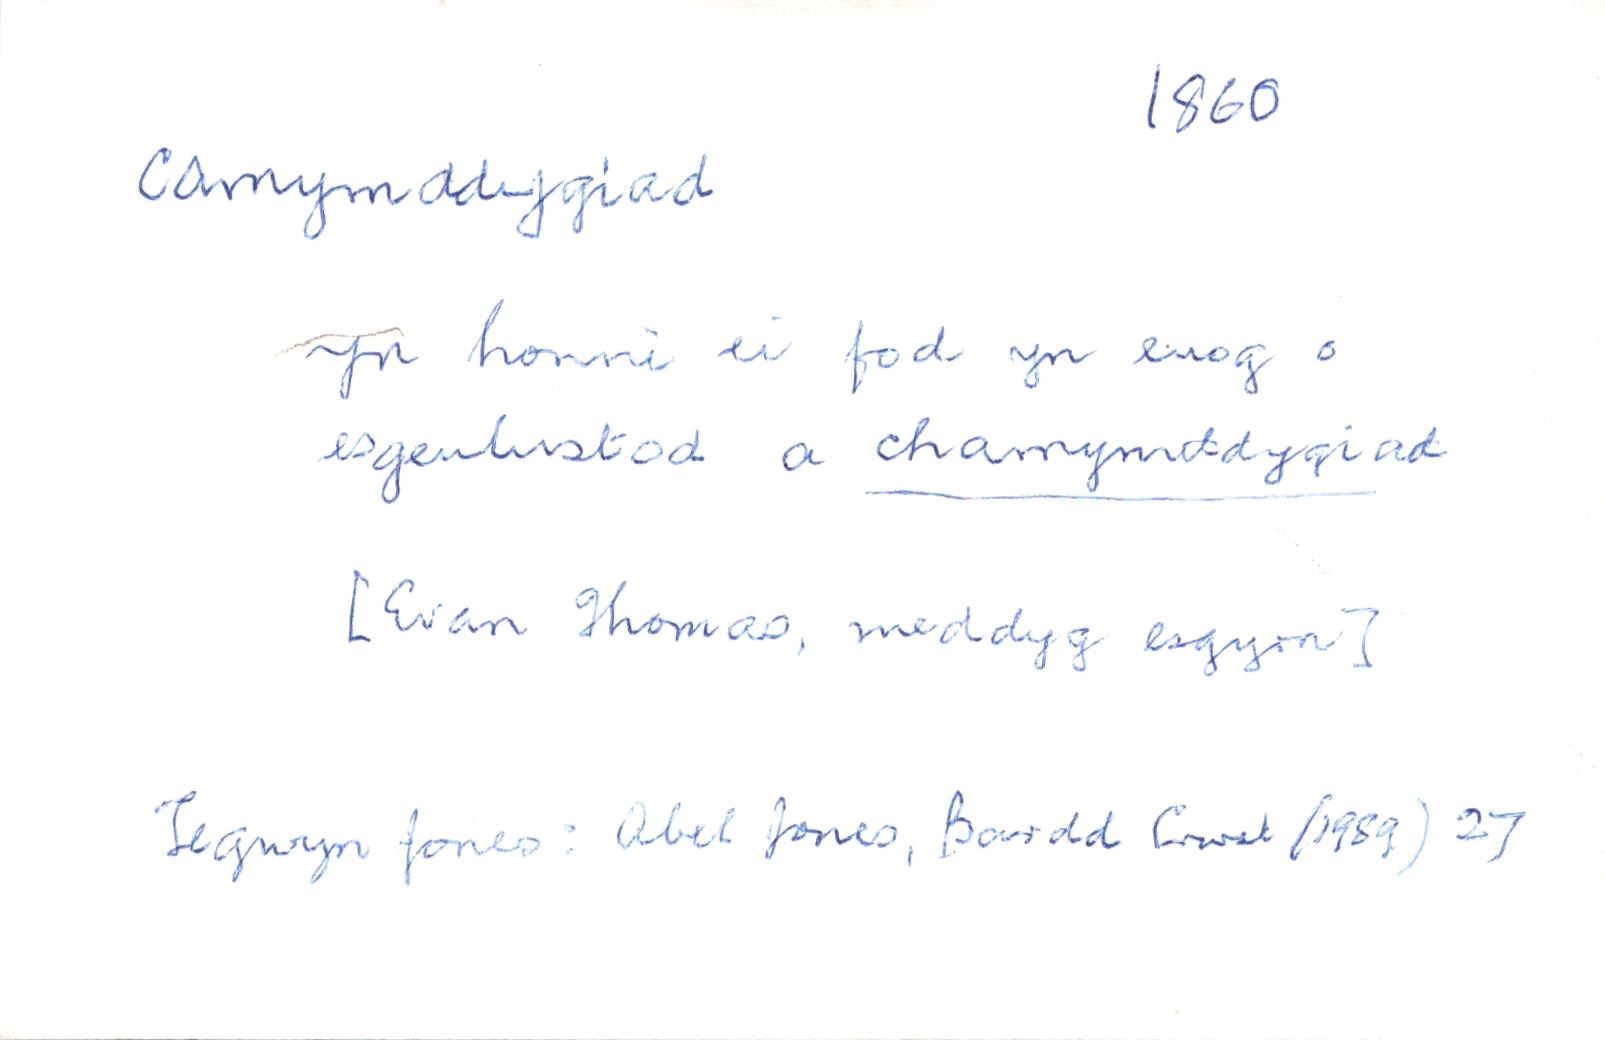 1860
Camymddygiad
yn honni ei fod yn euog o
esgeulustod a chamymddygiad
[Evan Thomas, meddyg esgyrn]
Tegwyn Jones: Abel Jones, Bardd Crwst (1989) 27